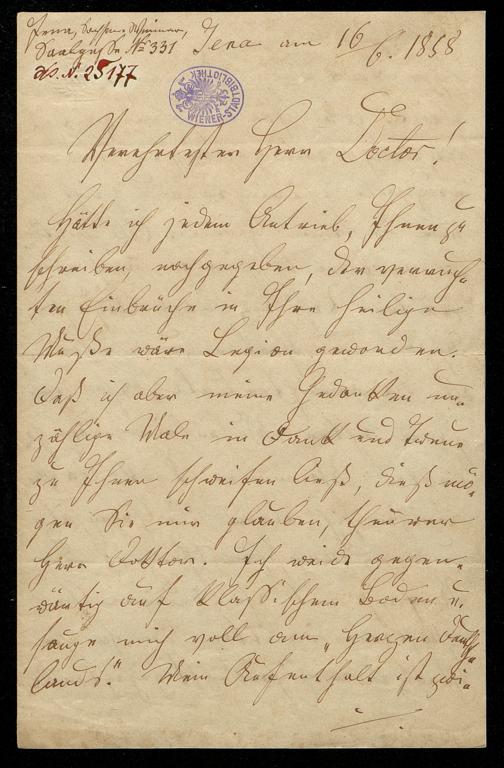 Jena, Sachsen-Weimar,
Saalgasse № 331
Jena am 16/6. 1858
J.N. 25177
WIENER-STADTBIBLIOTHEK
Verehrtester Herr Doctor!
Hätte ich jedem Antrieb, Ihnen zu
schreiben, nachgegeben, der verruch-
ten Einbrüche in Ihre heilige
Muße wäre Legion geworden.
Daß ich aber meine Gedanken un-
zählige Male in Dank und Treue
zu Ihnen schweifen ließ, dieß mö-
gen Sie mir glauben, theurer
Herr Doktor. Ich weide gegen-
wärtig auf klassischem Boden u.
sauge mich voll am „Herzen Deutsch-
lands." Mein Aufenthalt ist zwi-